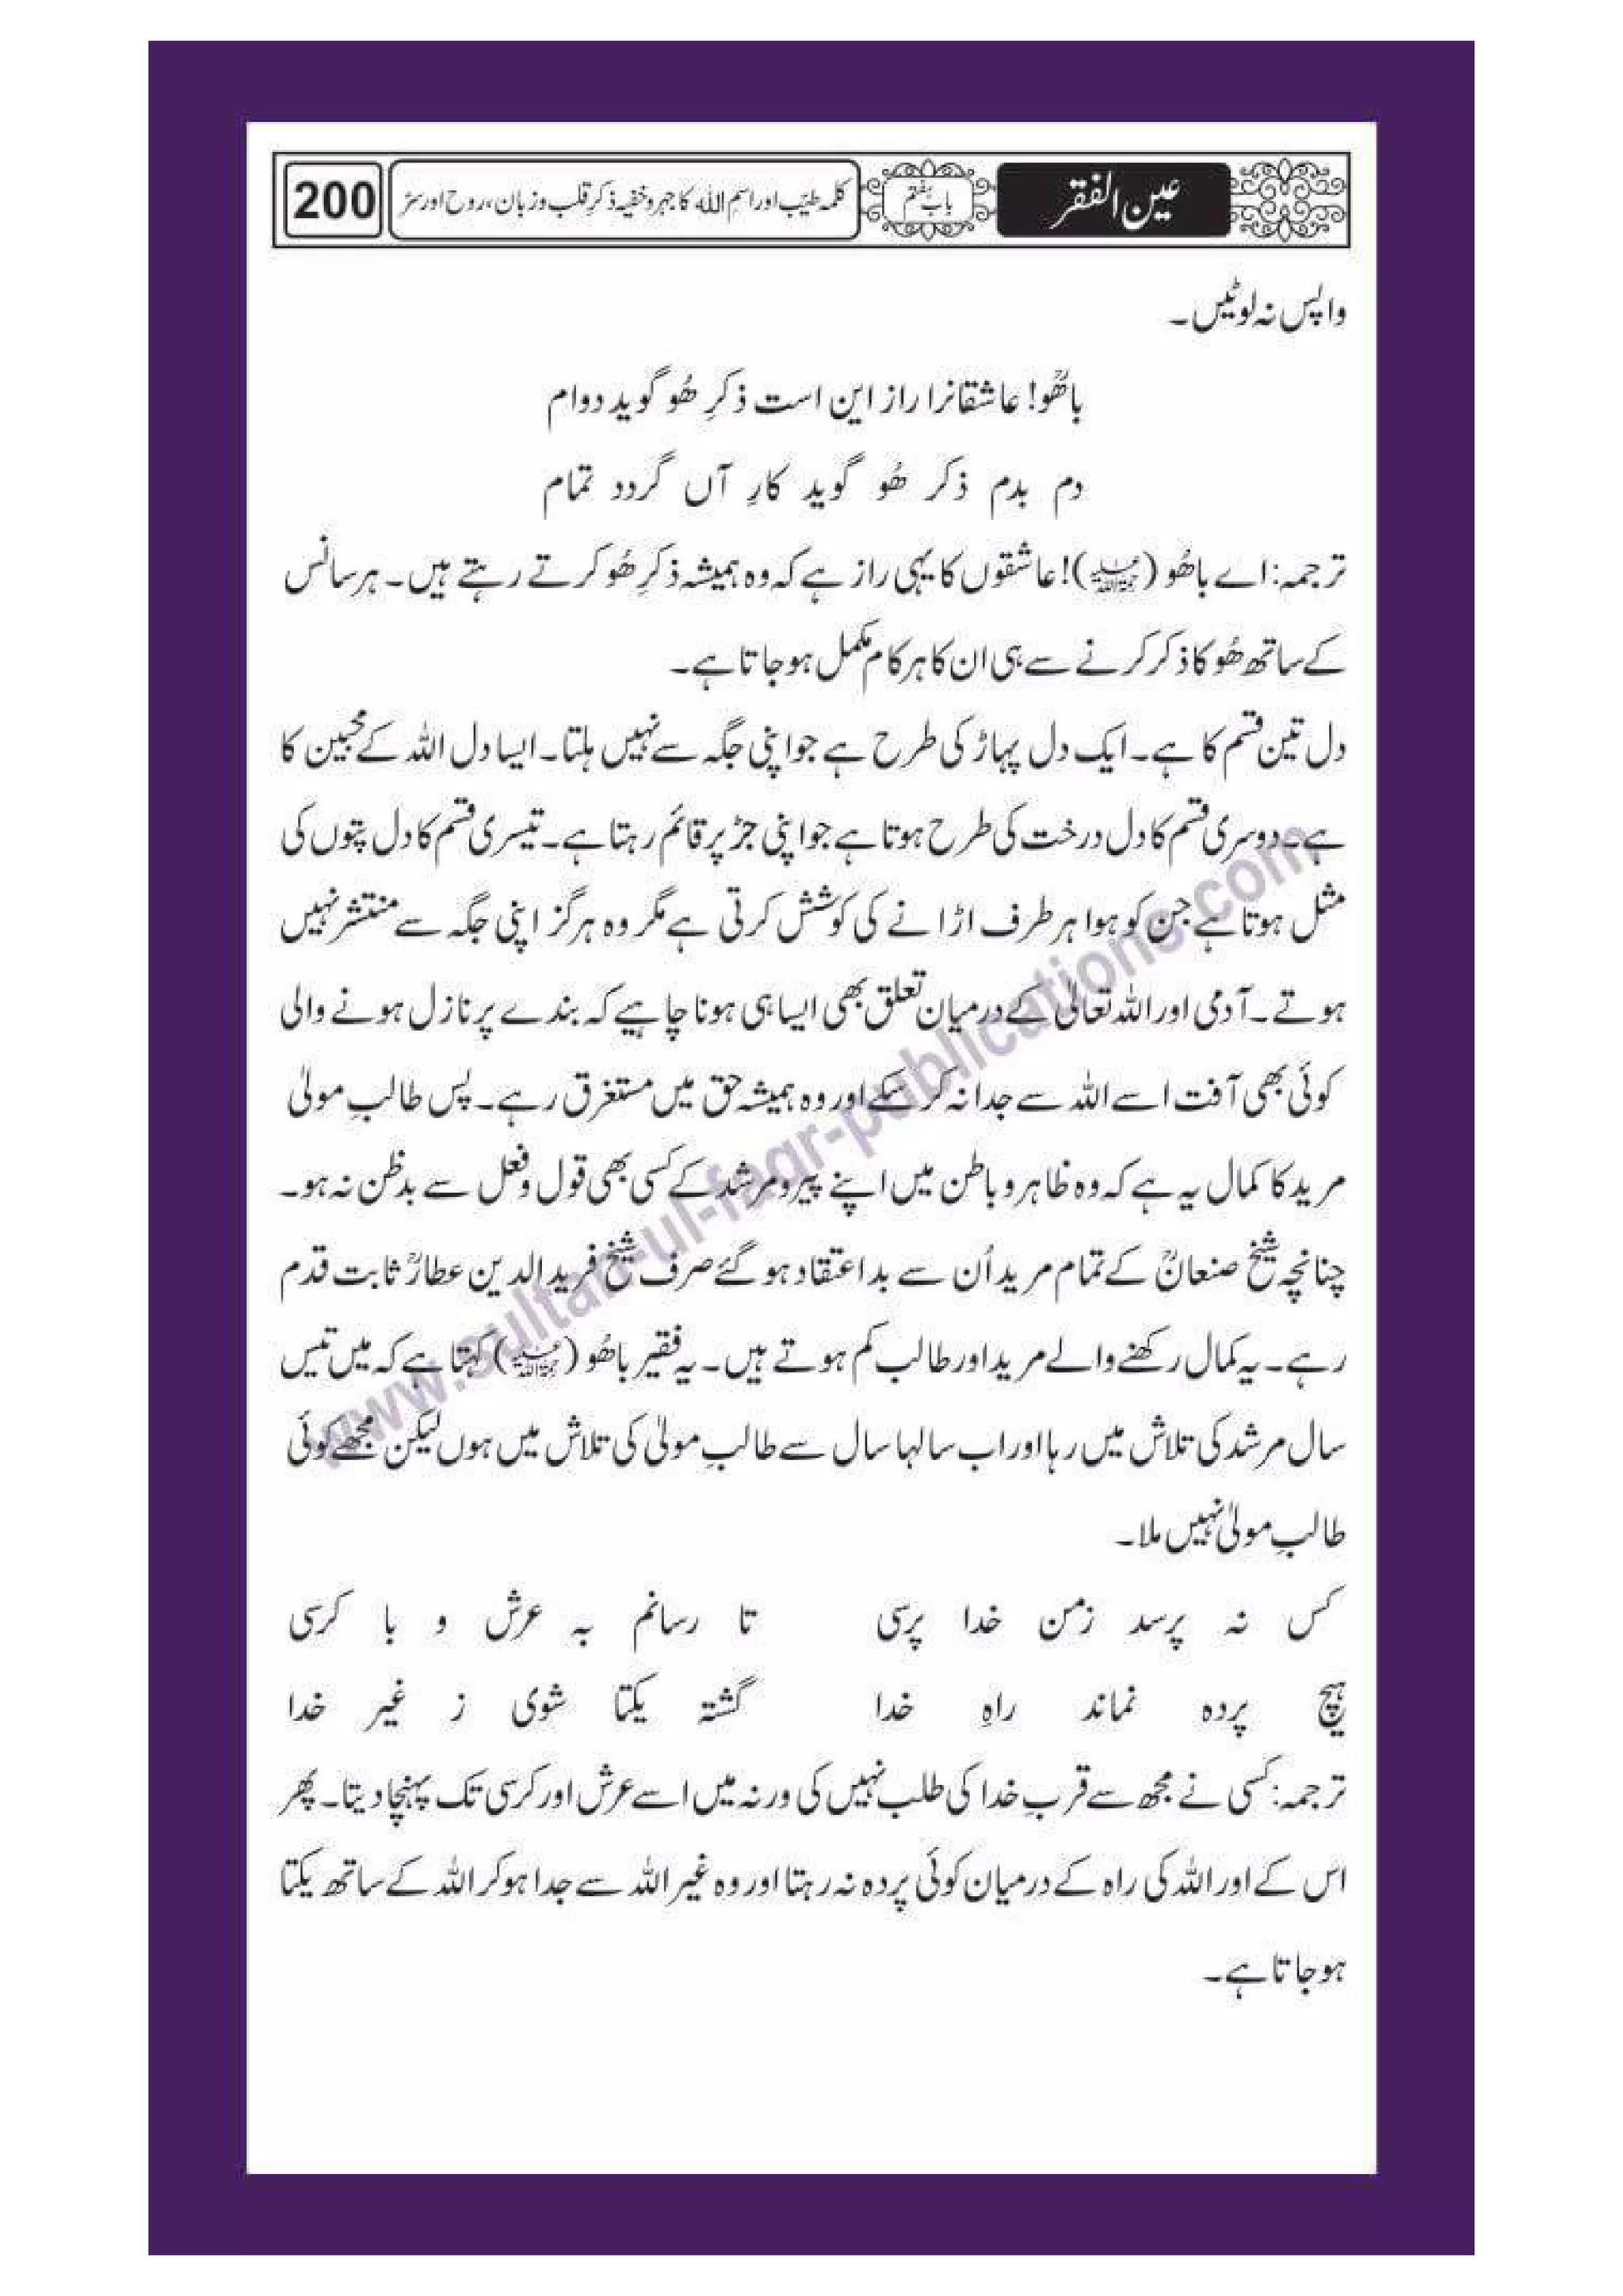 عین الفقر
باب ہفتم
کلمہ طیّب اور اسمِ اللہ کا جہر و خفیہ ذکرِ قلب و زبان، روح اور سرّ
200
واپس نہ لوٹیں۔
باھُوؒ! عاشقانرا راز این است ذکرِ ھُو گوید دوام
دم بدم ذکر ھُو گوید کارِ آں گردد تمام
ترجمہ: اے باھُو (رحمۃ اللہ علیہ)! عاشقوں کا یہی راز ہے کہ وہ ہمیشہ ذکرِ ھُو کرتے رہتے ہیں۔ ہر سانس
کے ساتھ ھُو کا ذکر کرنے سے ہی ان کا ہر کام مکمل ہو جاتا ہے۔
دل تین قسم کا ہے۔ ایک دل پہاڑ کی طرح ہے جو اپنی جگہ سے نہیں ہلتا۔ ایسا دل اللہ کے محبین کا
ہے۔ دوسری قسم کا دل درخت کی طرح ہوتا ہے جو اپنی جڑ پر قائم رہتا ہے۔ تیسری قسم کا دل پتوں کی
مثل ہوتا ہے جن کو ہوا ہر طرف اڑانے کی کوشش کرتی ہے مگر وہ ہرگز اپنی جگہ سے منتشر نہیں
ہوتے۔ آدمی اور اللہ تعالیٰ کے درمیان تعلق بھی ایسا ہی ہونا چاہیے کہ بندے پر نازل ہونے والی
کوئی بھی آفت اسے اللہ سے جدا نہ کر سکے اور وہ ہمیشہ حق میں مستغرق رہے۔ پس طالبِ مولیٰ
مرید کا کمال یہ ہے کہ وہ ظاہر و باطن میں اپنے پیر و مرشد کے کسی بھی قول و فعل سے بدظن نہ ہو۔
چنانچہ شیخ صنعانؒ کے تمام مرید اُن سے بداعتقاد ہو گئے صرف شیخ فرید الدین عطارؒ ثابت قدم
رہے۔ یہ کمال رکھنے والے مرید اور طالب کم ہوتے ہیں۔ یہ فقیر باھُو (رحمۃ اللہ علیہ) کہتا ہے کہ میں تیس
سال مرشد کی تلاش میں رہا اور اب سالہا سال سے طالبِ مولیٰ کی تلاش میں ہوں لیکن مجھے کوئی
طالبِ مولیٰ نہیں ملا۔
کس نہ پرسد زمن خدا پرسی تا رسانم بہ عرش و با کرسی
ہیچ پردہ نماند راہِ خدا گشتہ یکتا شوی ز غیر خدا
ترجمہ: کسی نے مجھ سے قربِ خدا کی طلب نہیں کی ورنہ میں اسے عرش اور کرسی تک پہنچا دیتا۔ پھر
اس کے اور اللہ کی راہ کے درمیان کوئی پردہ نہ رہتا اور وہ غیر اللہ سے جدا ہو کر اللہ کے ساتھ یکتا
ہو جاتا ہے۔
www.sultan-ul-faqr-publications.com